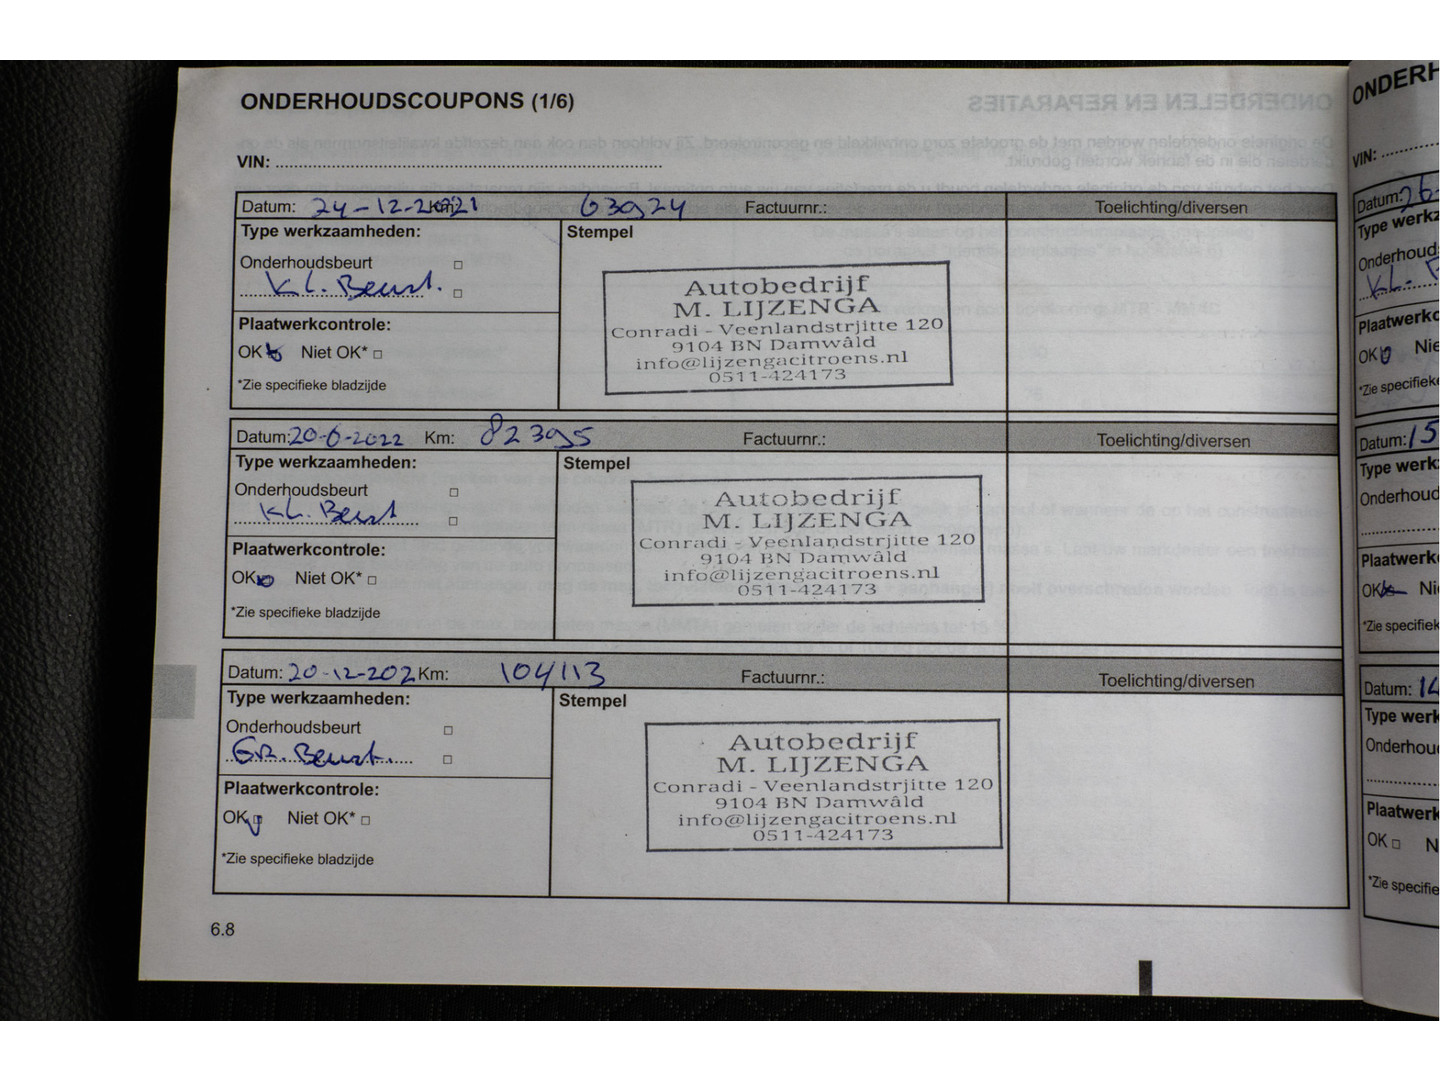 ONDERHOUDSCOUPONS (1/6)
VIN:
Datum: 24-12-2021 Km: 63924 Factuurnr.: Toelichting/diversen
Type werkzaamheden: Stempel
Onderhoudsbeurt
KL. Beurt.
Plaatwerkcontrole:
OK Niet OK*
*Zie specifieke bladzijde
Autobedrijf
M. LIJZENGA
Conradi - Veenlandstrjitte 120
9104 BN Damwâld
info@lijzengacitroens.nl
0511-424173
Datum: 20-6-2022 Km: 82395 Factuurnr.: Toelichting/diversen
Type werkzaamheden: Stempel
Onderhoudsbeurt
KL. Beurt
Plaatwerkcontrole:
OK Niet OK*
*Zie specifieke bladzijde
Autobedrijf
M. LIJZENGA
Conradi - Veenlandstrjitte 120
9104 BN Damwâld
info@lijzengacitroens.nl
0511-424173
Datum: 20-12-202 Km: 104113 Factuurnr.: Toelichting/diversen
Type werkzaamheden: Stempel
Onderhoudsbeurt
GR. Beurt.
Plaatwerkcontrole:
OK Niet OK*
*Zie specifieke bladzijde
Autobedrijf
M. LIJZENGA
Conradi - Veenlandstrjitte 120
9104 BN Damwâld
info@lijzengacitroens.nl
0511-424173
6.8
ONDERH
VIN:
Datum: 26-
Type werkz
Onderhoud
KL.
Plaatwerkc
OK Nie
*Zie specifieke
Datum: 15
Type werk
Onderhoud
Plaatwerk
OK Ni
*Zie specifiek
Datum: 14
Type werk
Onderhou
Plaatwerk
OK N
*Zie specifie